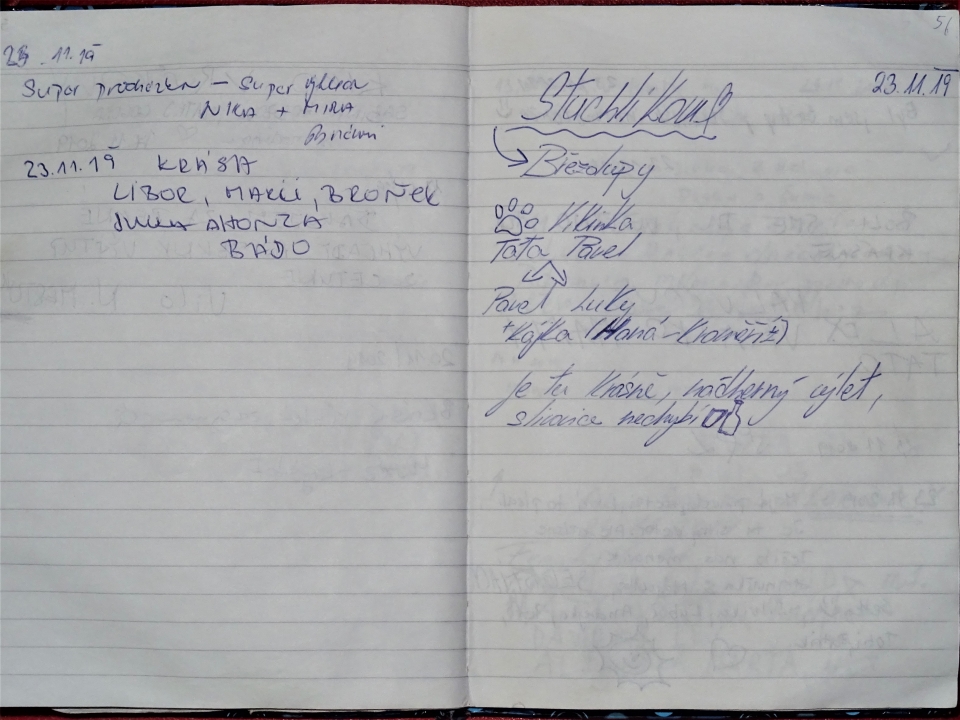 23.11.19
Super procházka - Super výhled
NIKA + MIRA
23.11.19 KRÁSA
LIBOR, MAKI, BRONEK
JULČA A HONZA
BÁDO
56
23.11.19
Stuchlíkovi
Březolupy
Vikinka
Taťa Pavel
Pavel Luky
+ Kájka (Haná-Kroměříž)
Je tu krásně, nádherný výlet,
slivovice nechybí